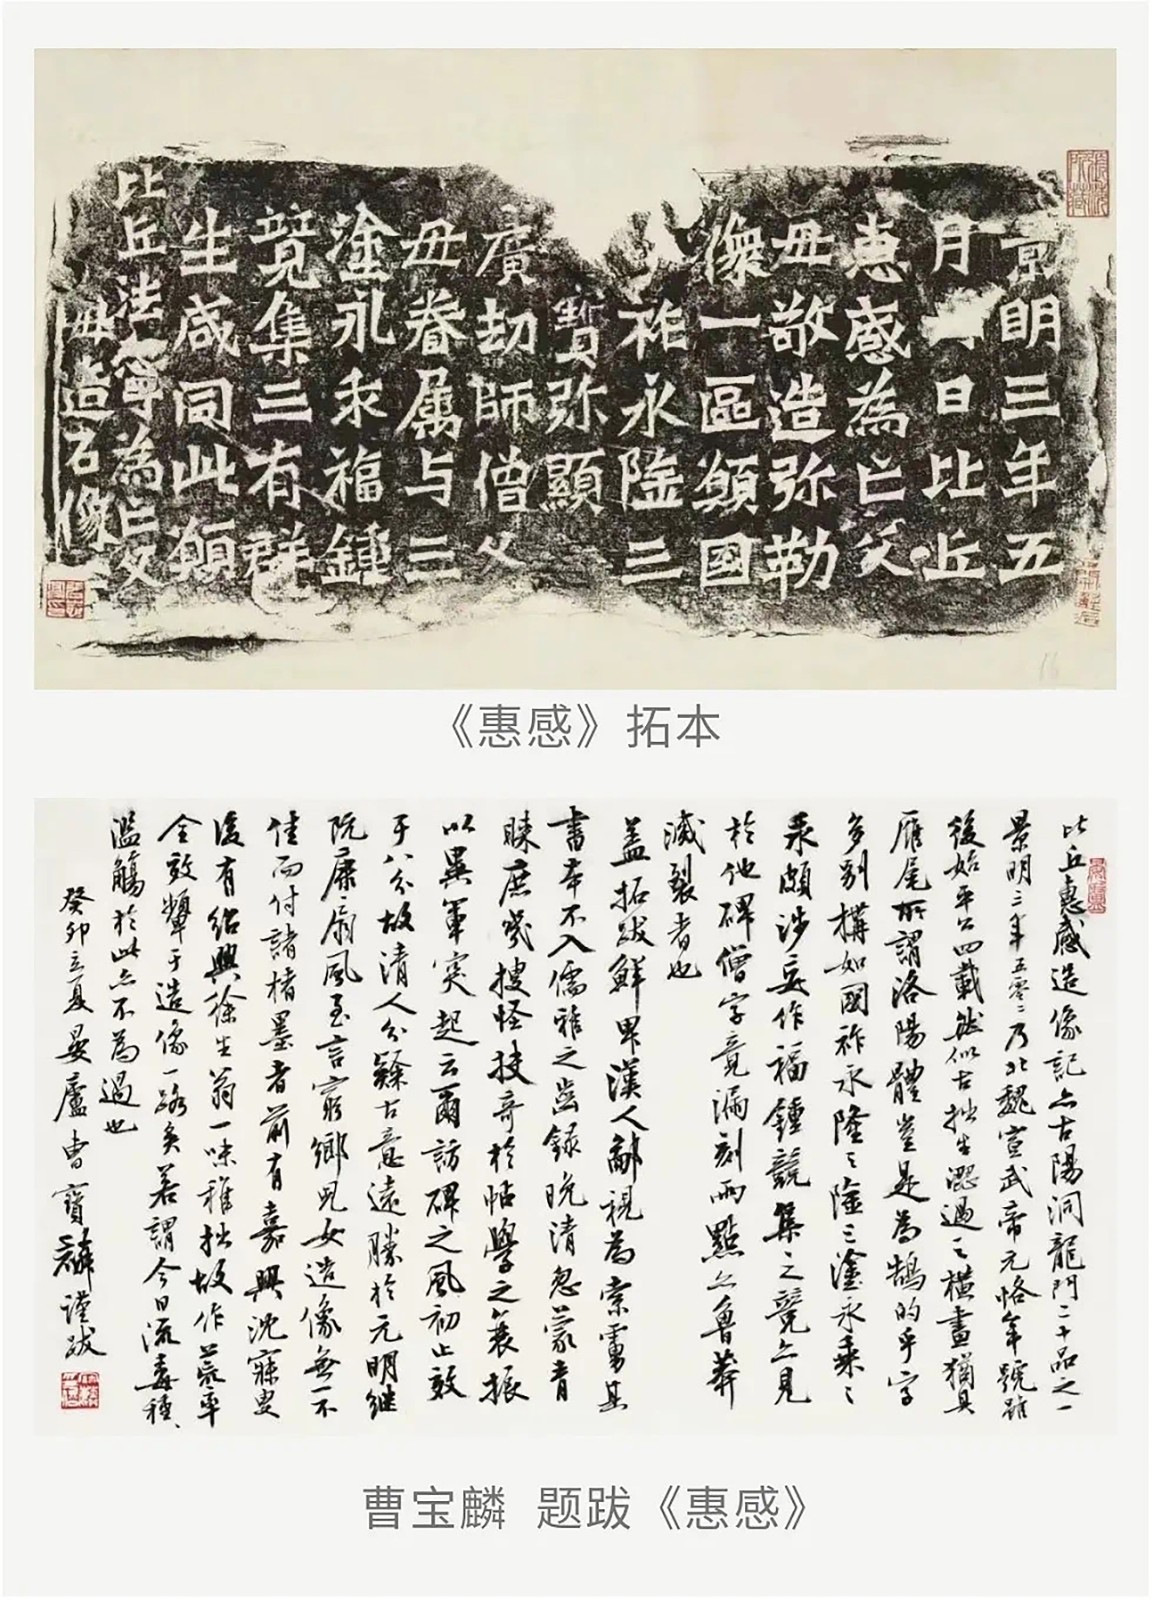 景明三年五
月日比丘
惠感為亡父
母敬造弥勒
像一區願國
祚永隆三
寶弥顯
廣劫師僧父
母眷属与三
塗永乖福鍾
竟集三有群
生咸同此願
比丘法寧為亡父
母造石像
《惠感》拓本
比丘惠感造像記亦古陽洞龍門二十品之一
景明三年五零二乃北魏宣武帝元恪年號雖
後始平公四載然似古拙生澀過之橫畫猶具
雁尾所謂洛陽體豈是為鵠的乎字
多别構如國祚永隆之隆三塗永乖之
乖頗涉妄作福鍾競集之競亦見
於他碑僧字竟漏刻兩點亦魯莽
滅裂者也
蓋拓跋鮮卑漢人鄙視為索虜其
書本不入儒雅之齒録晚清忽蒙青
睞庶幾搜怪抉奇於帖學之衰振
以異軍突起云爾訪碑之風初止效
于八分故清人分隸古意遠勝於元明繼
阮康扇風至言窮鄉兒女造像無不
佳而付諸楮墨者前有嘉興沈寐叟
後有紹興徐生翁一味稚拙故作荒率
全效顰于造像一路矣若謂今日流毒種
濫觴於此亦不為過也
癸卯立夏晏廬曹寶麟謹跋
曹宝麟 题跋《惠感》